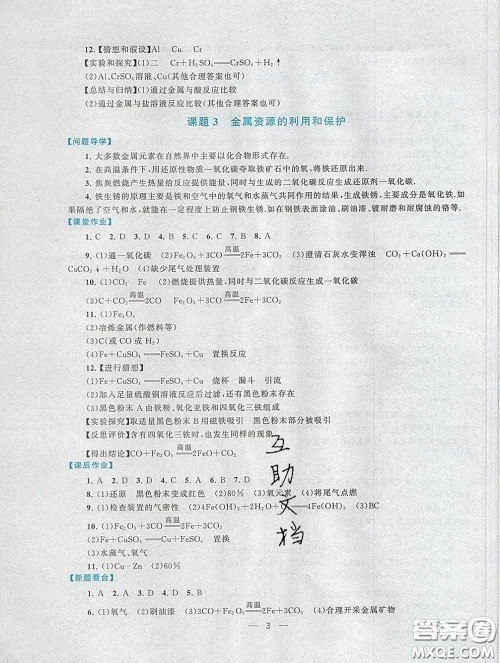 12.【猜想和假设】Al Cu Cr
【实验和探究】(1)二 Cr+H₂SO₄══CrSO₄+H₂↑
(2)Al、CrSO₄溶液、Cu(其他合理答案也可)
【总结与归纳】(1)通过金属与酸反应比较
(2)通过金属与盐溶液反应比较(其他合理答案也可)
课题3 金属资源的利用和保护
【问题导学】
1. 大多数金属元素在自然界中主要以化合物形式存在.
2. 在高温条件下,用还原性物质一氧化碳夺取铁矿石中的氧,将铁还原出来.
3. 焦炭燃烧产生热量给反应提供能量,同时与生成的二氧化碳反应生成还原剂一氧化碳.
4. 铁生锈的原理:主要是铁和空气中的氧气和水蒸气共同作用的结果,生成铁锈,主要成分是三氧化二铁,如
果隔绝了空气和水,就能在一定程度上防止钢铁生锈.如在钢铁表面涂油、刷油漆、镀耐磨和耐腐蚀的铬等.
【课堂作业】
1. C 2. D 3. D 4. D 5. B 6. B 7. C 8. A
9. (1)通一氧化碳 (2)Fe₂O₃+3CO高温══2Fe+3CO₂ (3)澄清石灰水变浑浊 CO₂+Ca(OH)₂══
CaCO₃↓+H₂O (4)缺少尾气处理装置
10. (1)CO₂ Fe (2)燃烧提供热量,同时与二氧化碳反应生成一氧化碳
(3)C+CO₂高温══2CO Fe₂O₃+3CO高温══2Fe+3CO₂
11. (1)Fe₂O₃
(2)冶炼金属(作燃料等)
(3)C(或CO或H₂)
(4)Fe+CuSO₄══FeSO₄+Cu 置换反应
12.【进行猜想】
(1)Fe+CuSO₄══FeSO₄+Cu 烧杯 漏斗 引流
(2)加入足量硫酸铜溶液反应后过滤,还有黑色粉末存在
(3)黑色粉末A由铁粉、氧化亚铁和四氧化三铁组成
【实验探究】取适量黑色粉末B用磁铁吸引 黑色粉末部分被吸引
【反思评价】含有四氧化三铁时,也发生同样的现象
【得出结论】CO+Fe₂O₃高温══2FeO+CO₂
【课后作业】
1. A 2. C 3. D 4. C 5. A 6. B 7. D
8. (1)还原 黑色粉末变成红色 (2)80% (3)氧元素 (4)将尾气点燃
9. (1)检查装置的气密性 (2)4Fe(OH)₂+2H₂O+O₂══4Fe(OH)₃ (3)BC
10. (1)Fe₂O₃+3CO高温══2Fe+3CO₂
(2)Fe+CuSO₄══Cu+FeSO₄ 置换
(3)水蒸气、氧气
11. (1)Cu-Zn (2)60%
【新题看台】
1. A 2. A 3. D 4. C 5. A
6. (1)氧气 (2)刷油漆 (3)Fe₂O₃+3CO高温══2Fe+3CO₂ (4)合理开采金属矿物
3
互助文档